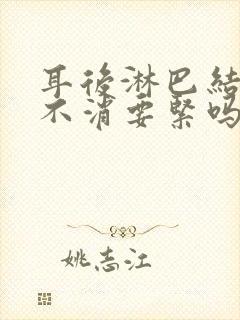 耳後淋巴結
不消要緊吗
姚志江